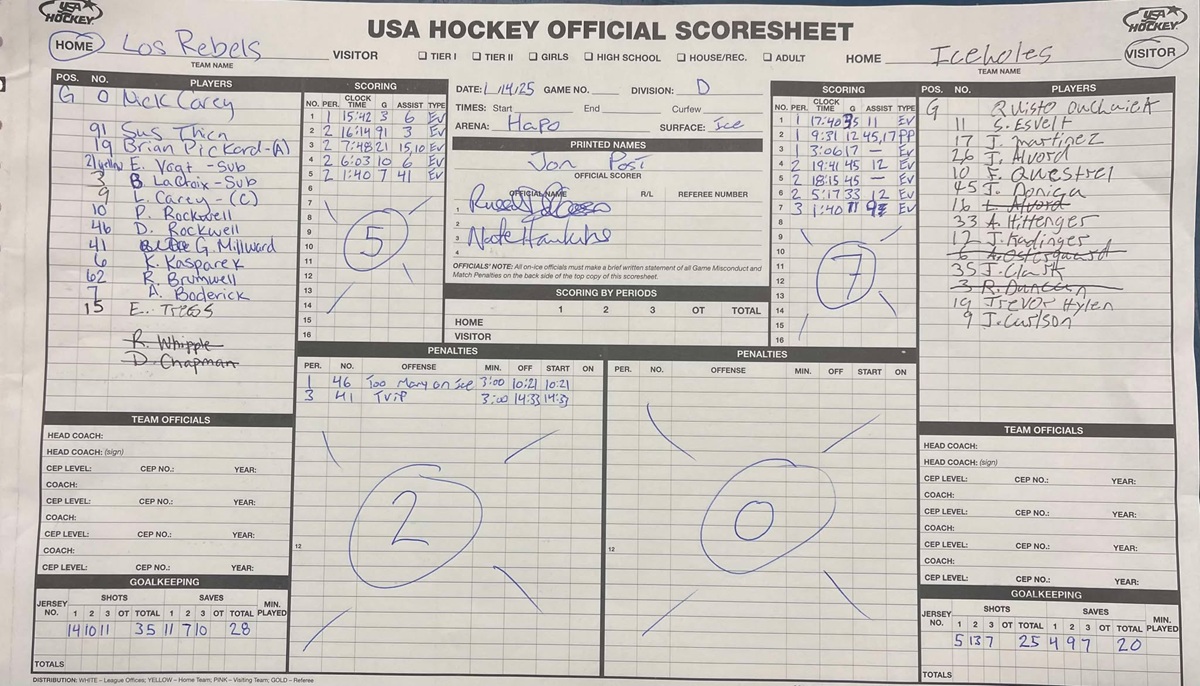 USA HOCKEY
USA HOCKEY OFFICIAL SCORESHEET
USA HOCKEY
HOME Los Rebels VISITOR
TEAM NAME
☐ TIER I ☐ TIER II ☐ GIRLS ☐ HIGH SCHOOL ☐ HOUSE/REC. ☐ ADULT
HOME Iceholes VISITOR
TEAM NAME
POS. NO. PLAYERS
G 0 Nick Carey
91 Sus Thien
19 Brian Pickard-(A)
21 yellow E. Vogt - Sub
3 B. LaCroix - Sub
9 L. Carey - (C)
10 P. Rockwell
46 D. Rockwell
41 G. Millward
6 K. Kasparek
62 R. Brumwell
7 A. Boderick
15 E. Tregs
R. Whipple
D. Chapman
SCORING
NO. PER. CLOCK TIME G ASSIST TYPE
1 1 15:42 3 6 EV
2 2 16:14 91 3 EV
3 2 7:48 21 15,10 EV
4 2 6:03 10 6 EV
5 2 1:40 7 41 EV
6
7
8
9
10
11
12
13
14
15
16
5
DATE: 1/14/25 GAME NO. DIVISION: D
TIMES: Start End Curfew
ARENA: Hapo SURFACE: Ice
PRINTED NAMES
Jon Post
OFFICIAL SCORER
OFFICIAL NAME R/L REFEREE NUMBER
1
2
3 Nate Hawkins
4
OFFICIALS' NOTE: All on-ice officials must make a brief written statement of all Game Misconduct and
Match Penalties on the back side of the top copy of this scoresheet.
SCORING BY PERIODS
1 2 3 OT TOTAL
HOME
VISITOR
SCORING
NO. PER. CLOCK TIME G ASSIST TYPE
1 1 17:40 35 11 EV
2 1 9:31 12 45,17 PP
3 1 3:06 17 — EV
4 2 19:41 45 12 EV
5 2 18:15 45 — EV
6 2 5:17 33 12 EV
7 3 1:40 11 9 EV
8
9
10
11
12
13
14
15
16
7
POS. NO. PLAYERS
G Quisto
11 S. Esvelt
17 J. martinez
26 J. Alvord
10 F. Questrel
45 J.
16 L. Alvord
33 A. Hittenger
12 J. Kadinger
6 A. Ostergaard
35 J. Clark
3 R. Duncan
19 Trevor Hylen
9 J. Carlson
PENALTIES
PER. NO. OFFENSE MIN. OFF START ON
1 46 Too Many on Ice 3:00 10:21 10:21
3 41 Trip 3:00 14:33 14:33
12
2
PENALTIES
PER. NO. OFFENSE MIN. OFF START ON
12
0
TEAM OFFICIALS
HEAD COACH:
HEAD COACH: (sign)
CEP LEVEL: CEP NO.: YEAR:
COACH:
CEP LEVEL: CEP NO.: YEAR:
COACH:
CEP LEVEL: CEP NO.: YEAR:
COACH:
CEP LEVEL: CEP NO.: YEAR:
GOALKEEPING
JERSEY NO. SHOTS SAVES MIN. PLAYED
1 2 3 OT TOTAL 1 2 3 OT TOTAL
14 10 11 35 11 7 10 28
TOTALS
TEAM OFFICIALS
HEAD COACH:
HEAD COACH: (sign)
CEP LEVEL: CEP NO.: YEAR:
COACH:
CEP LEVEL: CEP NO.: YEAR:
COACH:
CEP LEVEL: CEP NO.: YEAR:
COACH:
CEP LEVEL: CEP NO.: YEAR:
GOALKEEPING
JERSEY NO. SHOTS SAVES MIN. PLAYED
1 2 3 OT TOTAL 1 2 3 OT TOTAL
5 13 7 25 4 9 7 20
TOTALS
DISTRIBUTION: WHITE – League Offices; YELLOW – Home Team; PINK – Visiting Team; GOLD – Referee